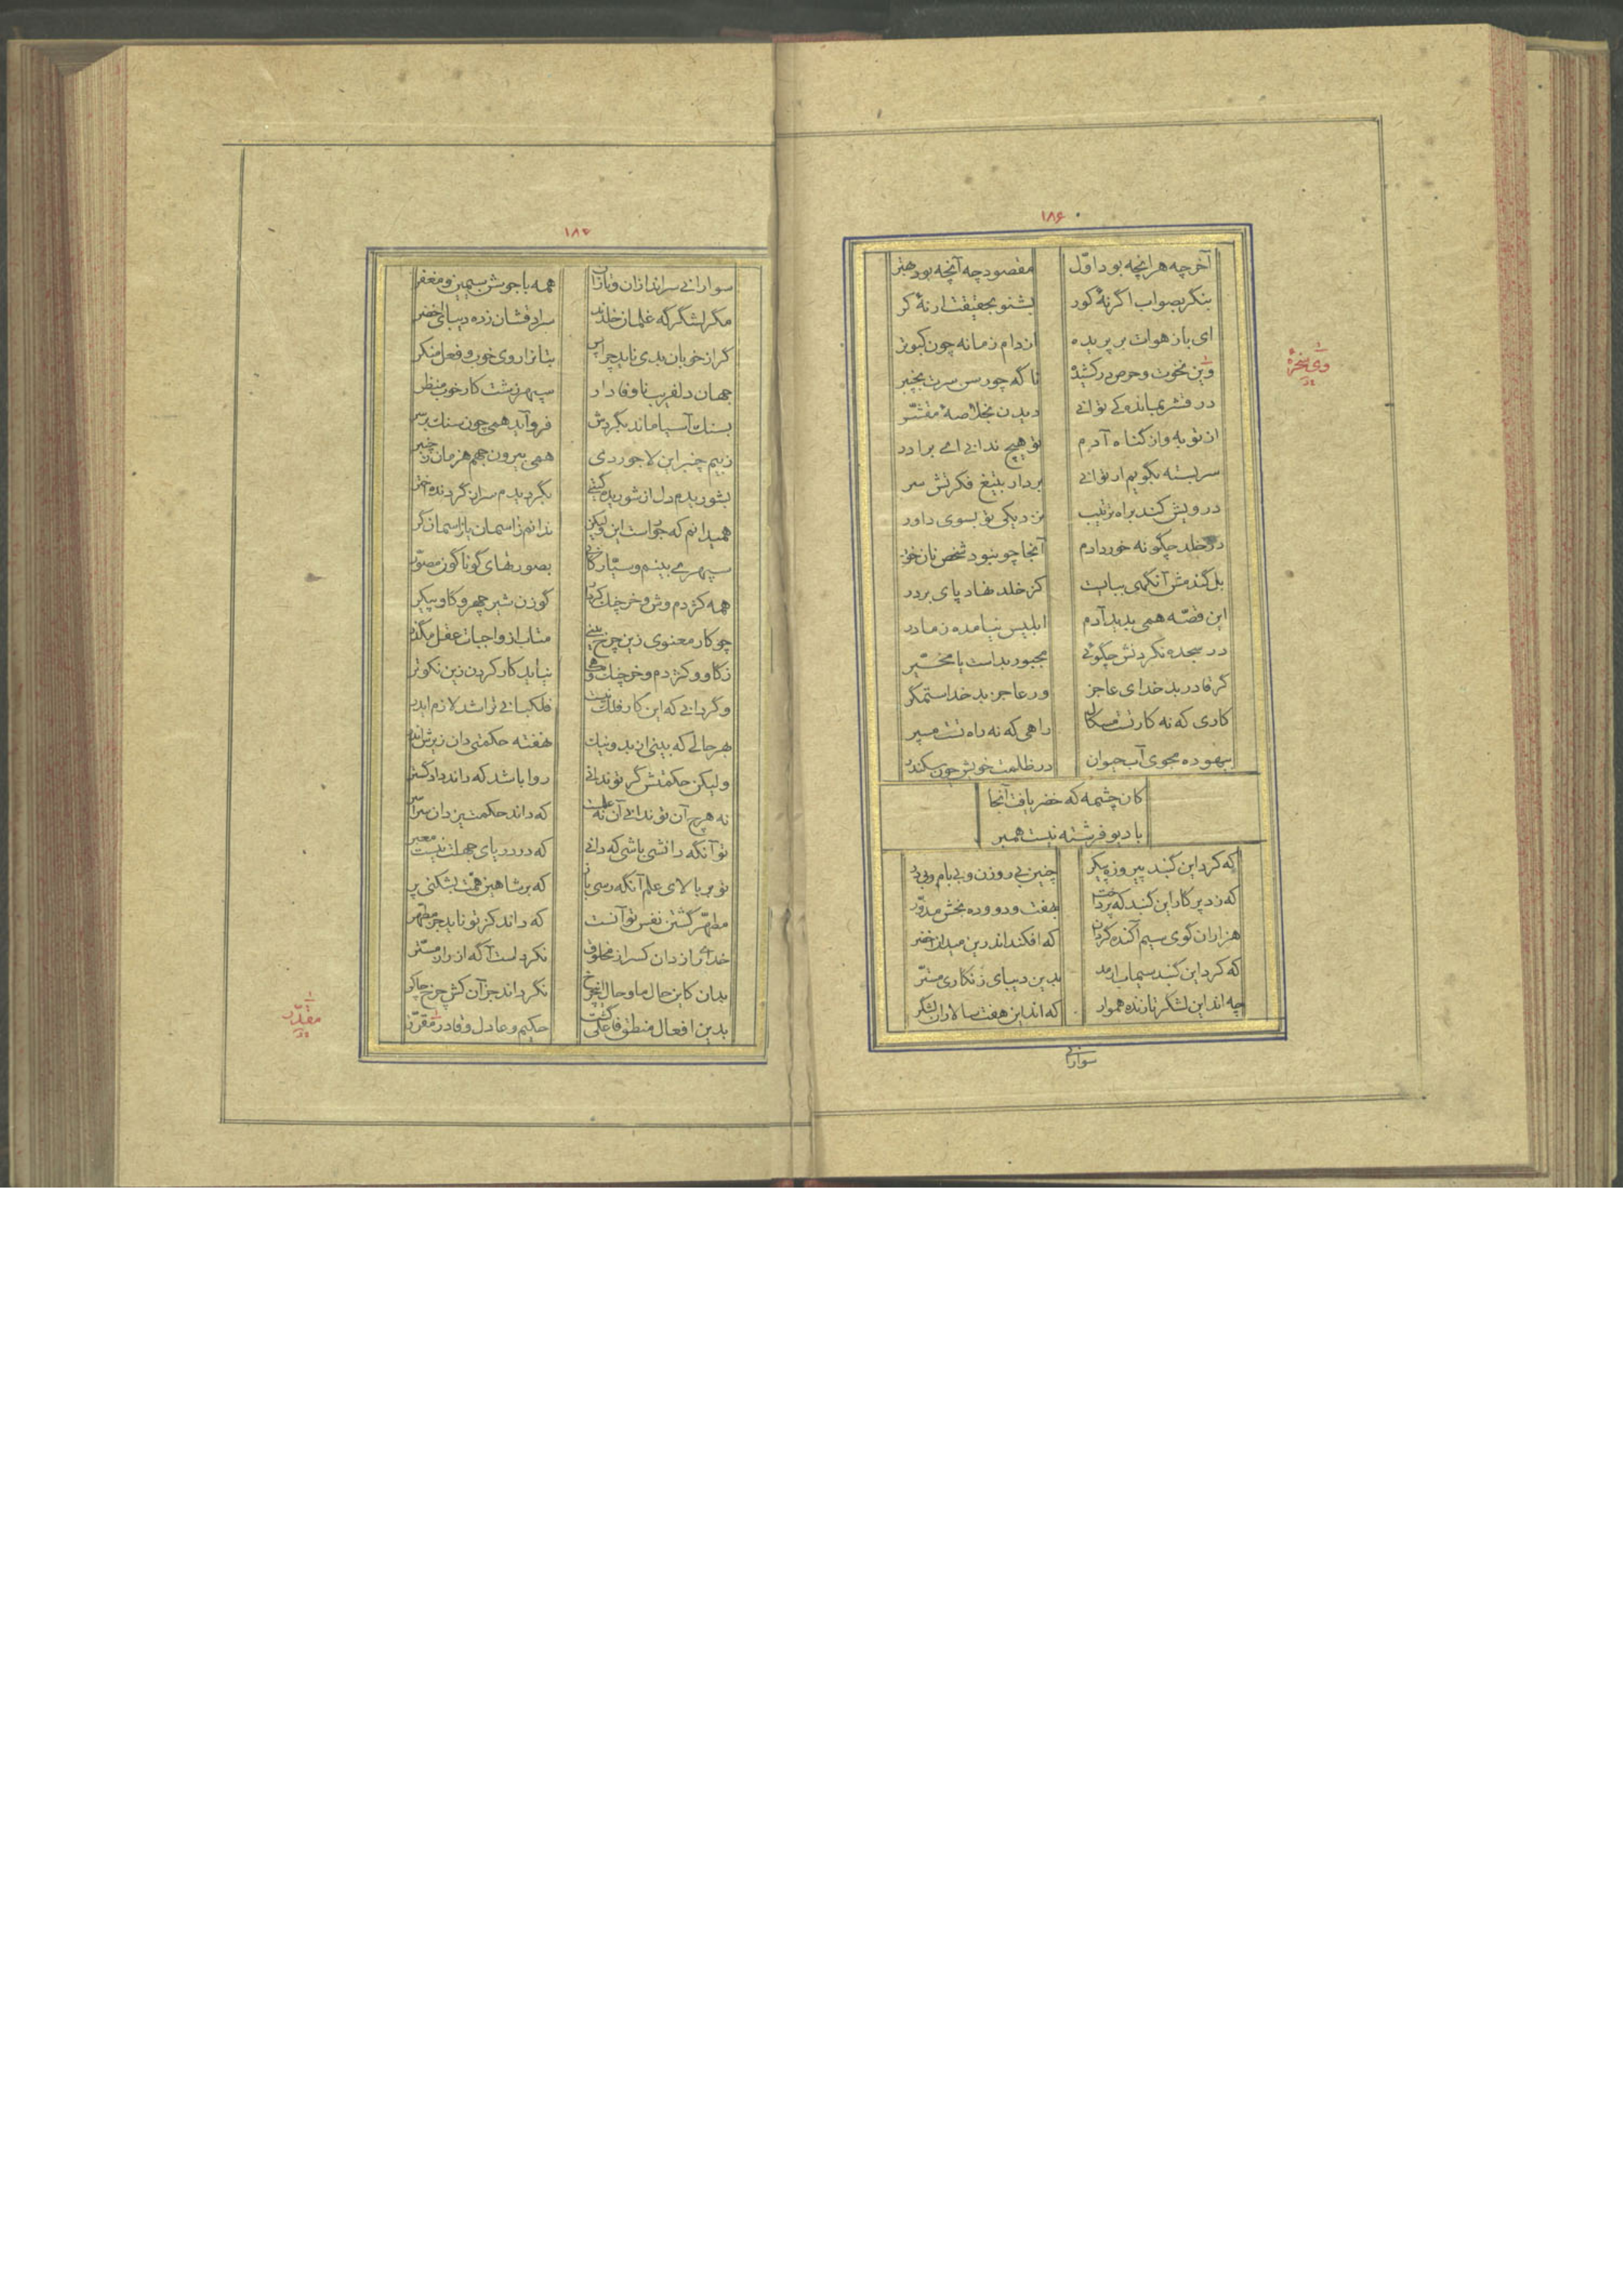 ۱۸۶
آخر چه هر انچه بود اوّل مقصود چه آنچه بود بهتر
بنگر بصواب اگر نهٔ کور بشنو بحقیقت ار نهٔ کر
ای باز هوات بر پریده از دام زمانه چون کبوتر
وین نخوت و حرص در کشیده ناگه چو رسن سرت بچنبر
در قشر بماندهٔ کی توانی دیدن بخلاصهٔ مقشّر
از توبه و از گناه آدم تو هیچ ندانی ای برادر
سربسته بگویم ار توانی بردار بتیغ فکرتش سر
درویش کند براه ترتیب نزدیکی تو بسوی داور
در خلد چگونه خورد آدم آنجا چو نبود شخص نان خور
بل گندمش آنگهی ببایست کز خلد نهاد پای بر در
این قصّه همی بدید آدم ابلیس نیامده ز مادر
در سجده نکردنش چگوئی مجبور بداست یا مخیّر
گر قادر بد خدای عاجز ور عاجز بد خدا ستمگر
کاری که نه کار تست مسکال راهی که نه راه تست مسپر
بیهوده مجوی آب حیوان در ظلمت خویش چون سکندر
کان چشمه که خضر یافت آنجا
با دیو فرشته نیست همبر
که کرد این گنبد پیروزه پیکر چنین بی روزن و بی بام و بی در
که زد پرکار این گنبد که پرداخت بهفت و دو و ده بخش مدوّر
هزاران گوی سیم آکنده گردان که افکند اندرین میدان اخضر
که کرد این گنبد سیماب بدین دیبای زنگاری مستّر
چه اند این لشکر تازنده هموار که اند این هفت سالاران لشکر
سوارانی
۱۸۷
سوارانی سراندازان و تازان همه با جوشن سیمین و مغفر
مگر لشگرگه غلمان خلدند سرادقشان زده دیبای اخضر
گر از خوبان بدی ناید چرا پس بتا نزا روی خوب و فعل منکر
جهان دلفریب ناوفادار سپهر زشت کار خوب منظر
بسنک آسیا ماند بگردش فرو آید همی چون سنک بر سر
ز بیم چنبر این لاجوردی همی بیرون جهم هزمان ز چنبر
بشوریدم دل از شوریده گیتی بگردیدم سر از گردنده
همیدانم که جوّاست این ولیکن ندانم ز اسمان باز اسمان گر
سپهر می بینم و سیّارگانی بصورتهای گوناگون مصوّر
همه کژدم وش و خرچنک کردار گوزن شیر چهر و گاو پیکر
چو کار معنوی زین چرخ بینی متاب از واجبات عقل مگذر
ز گاو و کژدم و خرچنک و ماهی نیاید کار کردن زین نکوتر
و گر دانی که این کار فلک نیست فلکبانی تراشد لازم ایدر
بهر حالی که بینی از بد و نیک نهفته حکمتی دان زیرش اندر
ولیکن حکمتش گر تو ندانی روا باشد که داند دادگستر
نه هرچ آن تو ندانی آن نه علمست که داند حکمت یزدان سراسر
تو آنگه دانشی باشی که دانی که در دریای جهلت نیست معبر
تو بر بالای علم آنگه رسی باز که بر شاهین همّت بشکنی پر
مطهّر گشتن نفس تو آنست که داند کز تو ناید جز مطهّر
خدای راز دان کس را ز مخلوق نکرد است آگه از راز مستّر
بدان کاین حال ما و حال این چرخ نگرداند جز آن کش چرخ چاکر
بدین افعال منطق فاعلی گشت حکیم و عادل و قادر مقرّر
مقدّر